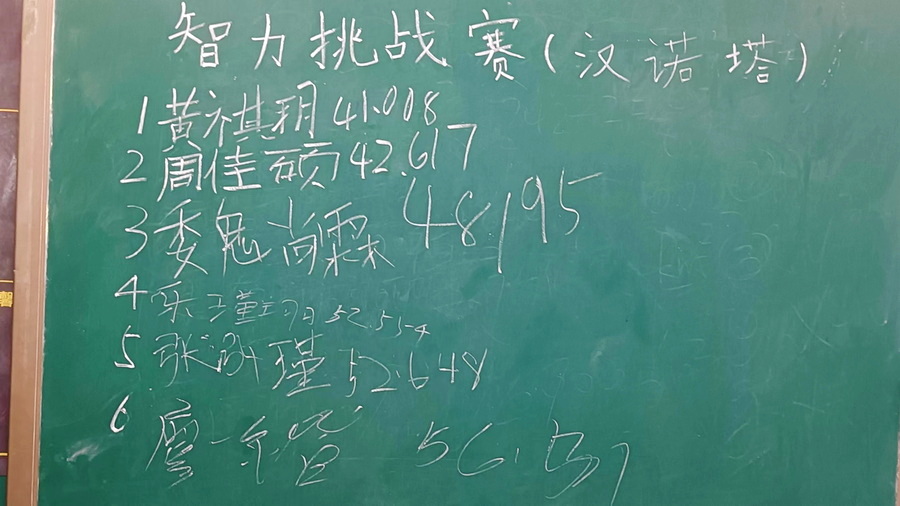 智力挑战赛(汉诺塔)
1 黄祺玥 41.008
2 周佳硕 42.617
3 魏尚霖 48.195
4 乐瑾羽 52.554
5 张 瑾 52.648
6 56.